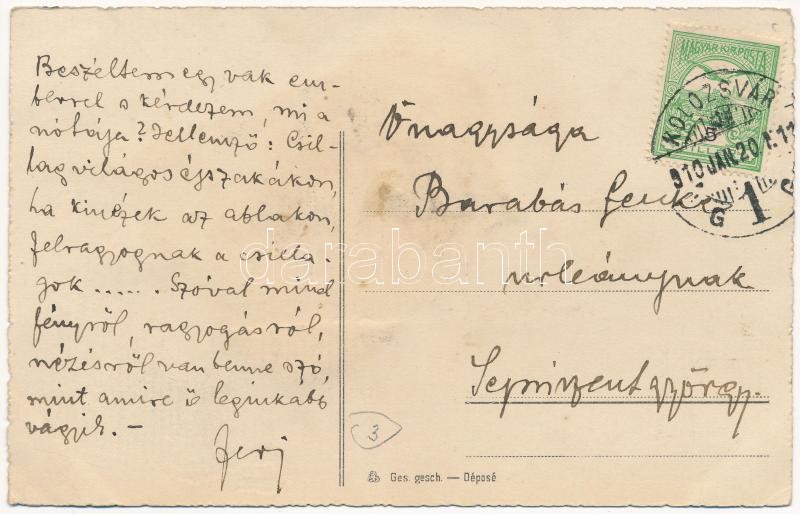 Beszéltem egy vak em-
berrel s kérdezem, mi a
nótája? Jellemző: Csil-
lag világos éjszakákon,
ha kinézek az ablakon,
felragyognak a csilla-
gok ..... Szóval mind
fényről, ragyogásról,
nézésről van benne szó,
mint amire ő leginkább
vágyik. –
Feri
Őnagysága
Barabás Lenke
urleánynak
Sepsiszentgyörgy.
MAGYAR KIR. POSTA
KOLOZSVÁR
910 JAN. 20
G 1 G
3
Ges. gesch. — Déposé
darabanth